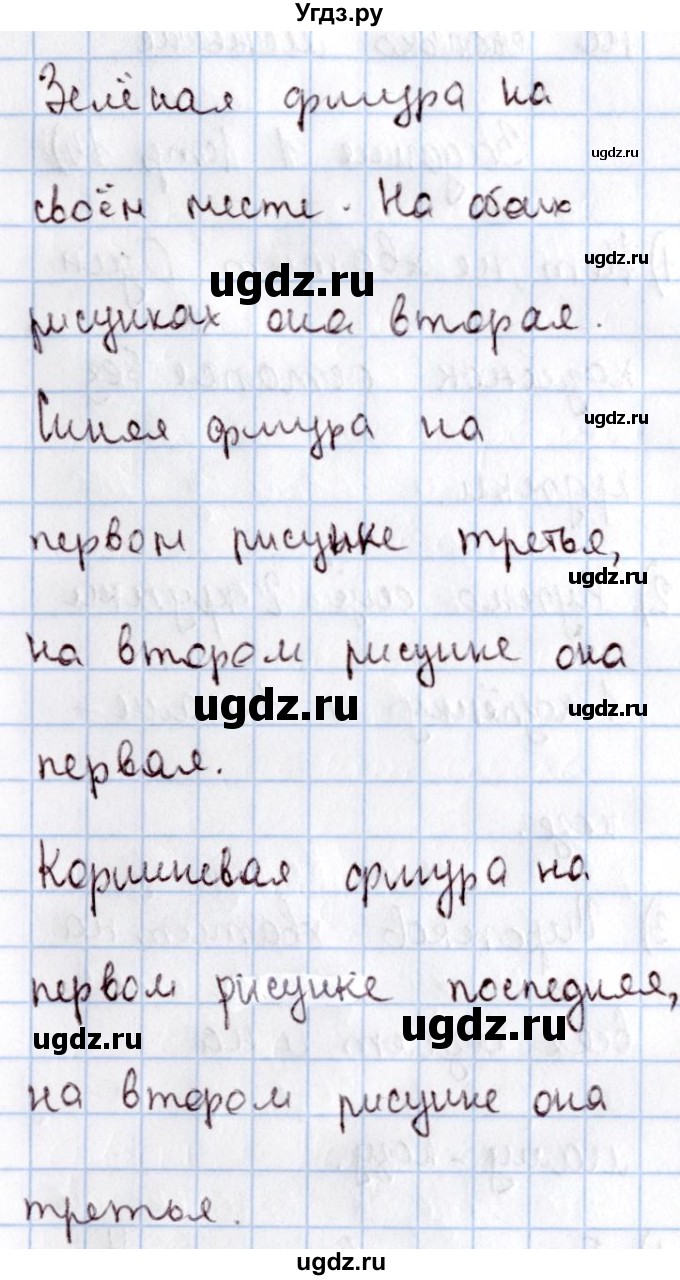 Угдз.ру
Зелёная фигура на
ugdz.ru
своём месте. На обоих
ugdz.ru
ugdz.ru
рисунках она вторая.
Синяя фигура на
ugdz.ru
первом рисунке третья,
ugdz.ru
на втором рисунке она
ugdz.ru
ugdz.ru
первая.
Коричневая фигура на
первом рисунке последняя,
ugdz.ru
ugdz.ru
на втором рисунке она
третья.
ugdz.ru